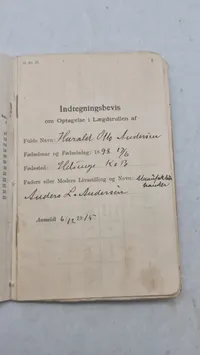 Indtegningsbevis
om Optagelse i Lægdsrullen af
Fulde Navn: Harald Otto Andersen
Fødselsaar og Fødselsdag: 1898
Fødested:
Faders eller Moders Livsstilling og Navn:
Anders L. Andersen
Anmeldt 6/12 1915